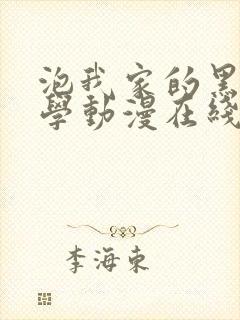 泡我家的黑
學動漫在綫
李海東